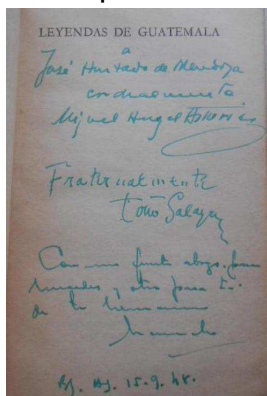 LEYENDAS DE GUATEMALA
a
José Hurtado de Mendoza
cordialmente
Miguel Angel Asturias
Fraternalmente
Toño Salazar
Con un fuerte abrazo para
y otro para ti
de tu hermano
Bs. As. 15-9.48.